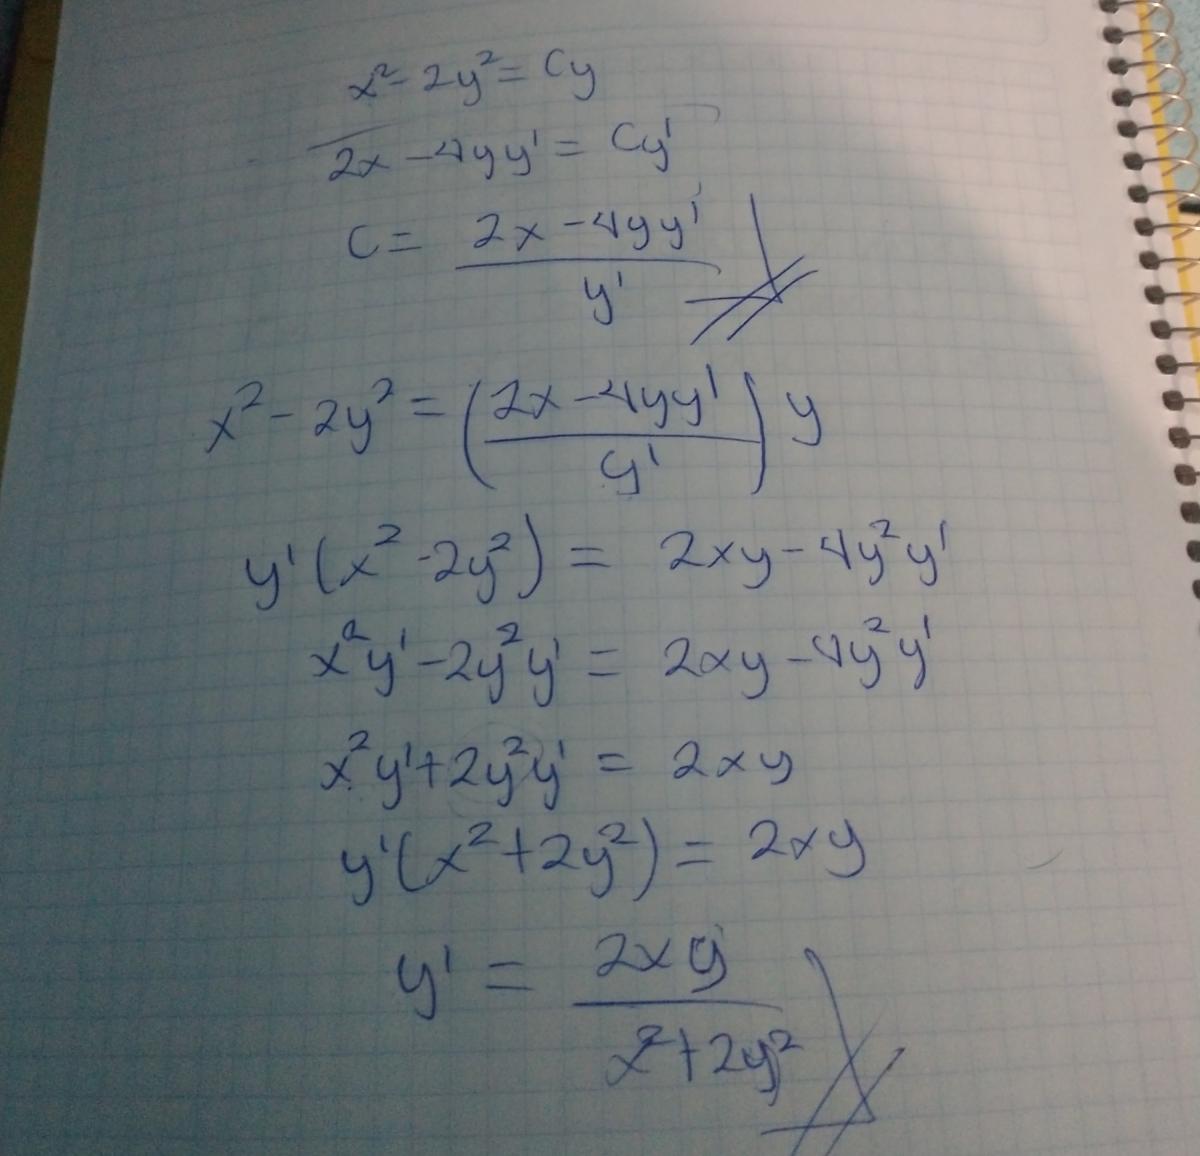 x² - 2y² = Cy
2x - 4yy' = Cy'
C = (2x - 4yy')/y'
x² - 2y² = ((2x - 4yy')/y') y
y'(x² - 2y²) = 2xy - 4y²y'
x²y' - 2y²y' = 2xy - 4y²y'
x²y' + 2y²y' = 2xy
y'(x² + 2y²) = 2xy
y' = 2xy/(x² + 2y²)